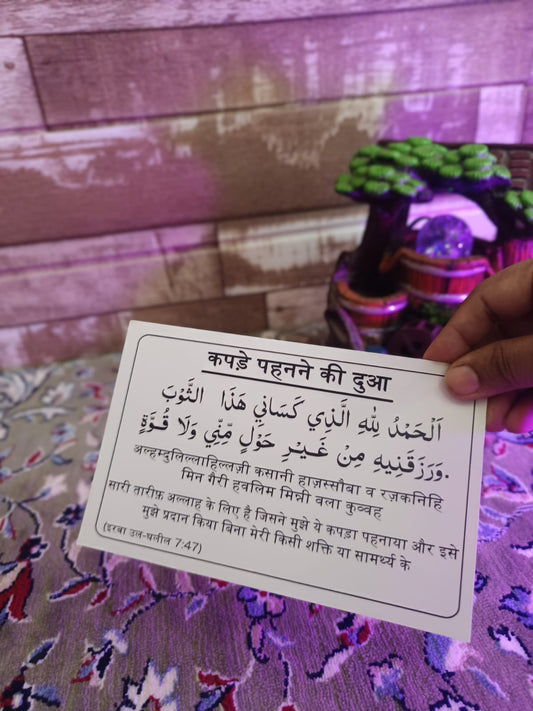 कपड़े पहनने की दुआ
اَلْحَمْدُ لِلّٰهِ الَّذِي كَسَانِي هَذَا الثَّوْبَ
وَرَزَقَنِيهِ مِنْ غَيْرِ حَوْلٍ مِّنِّي وَلَا قُوَّةٍ.
अल्हम्दुलिल्लाहिल्लज़ी कसानी हाज़स्सौबा व रज़कनिहि
मिन गैरी हवलिम मिन्नी वला कुव्वह
सारी तारीफ़ अल्लाह के लिए है जिसने मुझे ये कपड़ा पहनाया और इसे
मुझे प्रदान किया बिना मेरी किसी शक्ति या सामर्थ्य के
(इरवा उल-घलील 7:47)